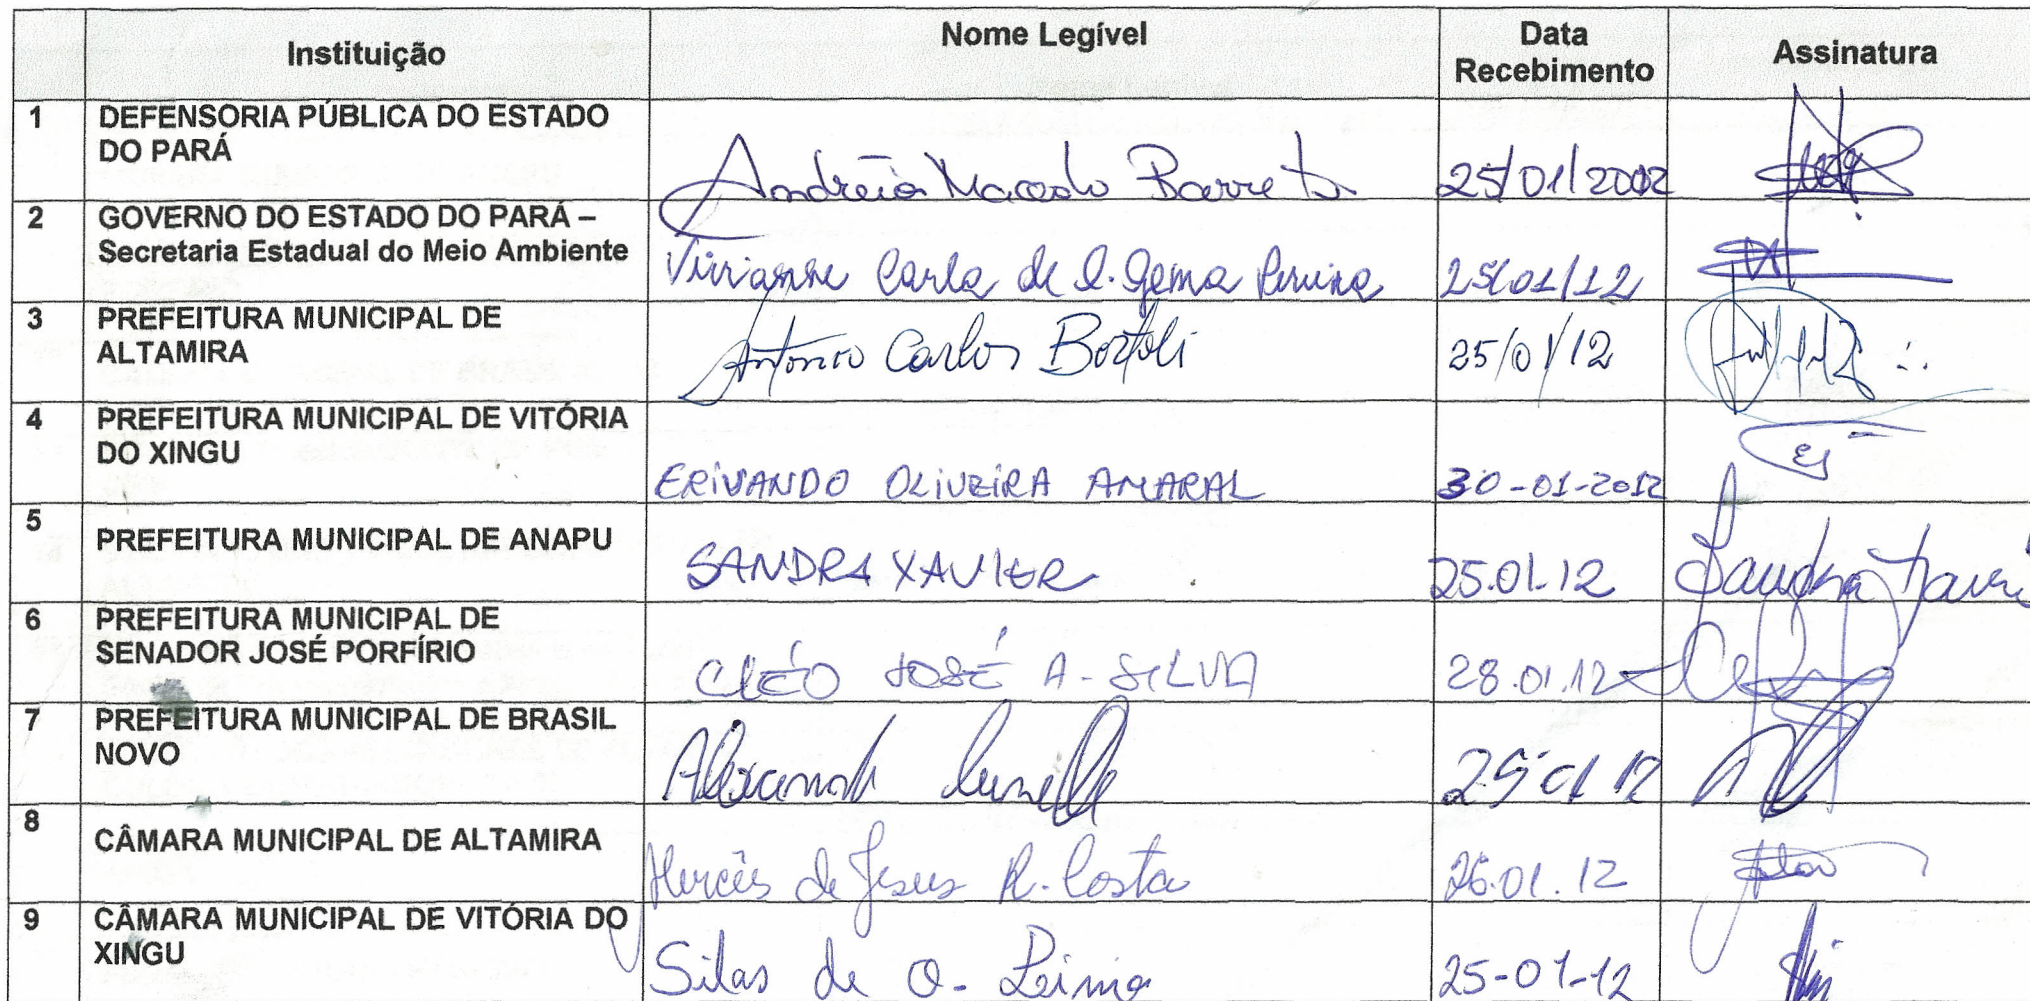 Instituição Nome Legível Data Recebimento Assinatura
1 DEFENSORIA PÚBLICA DO ESTADO
DO PARÁ Andréia Macedo Barreto 25/01/2002
2 GOVERNO DO ESTADO DO PARÁ –
Secretaria Estadual do Meio Ambiente Vivianne Carla de Gama 25/01/12
3 PREFEITURA MUNICIPAL DE
ALTAMIRA Antonio Carlos Bortoli 25/01/12
4 PREFEITURA MUNICIPAL DE VITÓRIA
DO XINGU ERIVANDO OLIVEIRA AMARAL 30-01-2012
5
PREFEITURA MUNICIPAL DE ANAPU SANDRA XAVIER 25.01.12 Sandra
6 PREFEITURA MUNICIPAL DE
SENADOR JOSÉ PORFÍRIO CLÉO JOSÉ A-SILVA 28.01.12
7 PREFEITURA MUNICIPAL DE BRASIL
NOVO 25 01 12
8
CÂMARA MUNICIPAL DE ALTAMIRA Mercês de Jesus R. Costa 26.01.12
9 CÂMARA MUNICIPAL DE VITÓRIA DO
XINGU Silas de O. 25-01-12